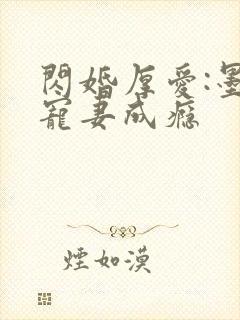 閃婚厚愛:墨
寵妻成瘾
煙如漠